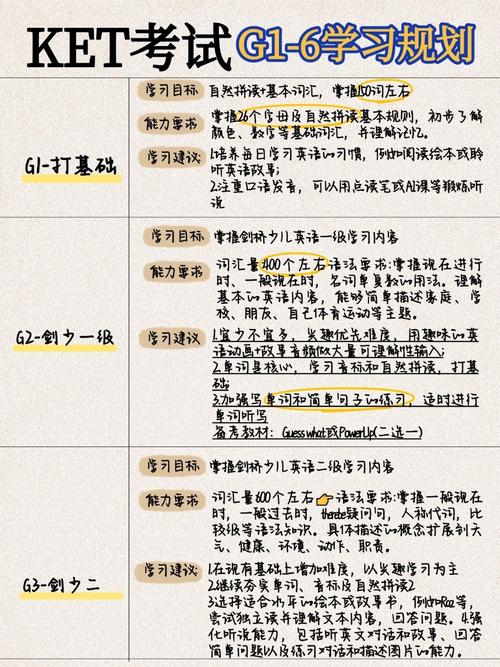 KET考试G1-6学习规划
学习目标
自然拼读+基本词汇，掌握150词左右
能力要求
掌握26个字母及自然拼读基本规则，初步了解
颜色、数字等基础词汇，并理解记忆。
G1-打基础
学习建议
1.培养每日学习英语的习惯，例如阅读绘本或聆
听英语故事；
2.注重口语发音，可以用点读笔或AI课等锻炼听
说
学习目标
掌握剑桥少儿英语一级学习内容
能力要求
词汇量400个左右语法要求:掌握现在进行
时、一般现在时，名词单复数的用法。理解
基本的英语内容，能够简单描述家庭、学
校、朋友、自己体育运动等主题。
G2-剑少一级
学习建议
1.宜少不宜多，兴趣优先难度，用趣味的英
语动画+故事音频做大量可理解性输入；
2.单词是核心，学习音标和自然拼读，打基
础；
3.加强写单词和简单句子的练习，适时进行
单词听写
备考教材：Guess what或PowerUp(二选一)
学习目标
掌握剑桥少儿英语二级学习内容
能力要求
词汇量600个左右👉语法要求:掌握一般现在
时，一般过去时，therebe疑问句，人称代词，比
较级等语法知识。具体描述的概念扩展到天
气、健康、环境、动作、职责。
G3-剑少二
学习建议
1.在现有基础上增加难度，以兴趣学习为主
2继续夯实单词、音标及自然拼读2
3选择适合水平的绘本或故事书，例如Raz等，
尝试独立读并理解文本内容，回答问题。4.强
化听说能力，包括听英文对话和故事、回答
简单问题以及练习对话和描述图片的能力。